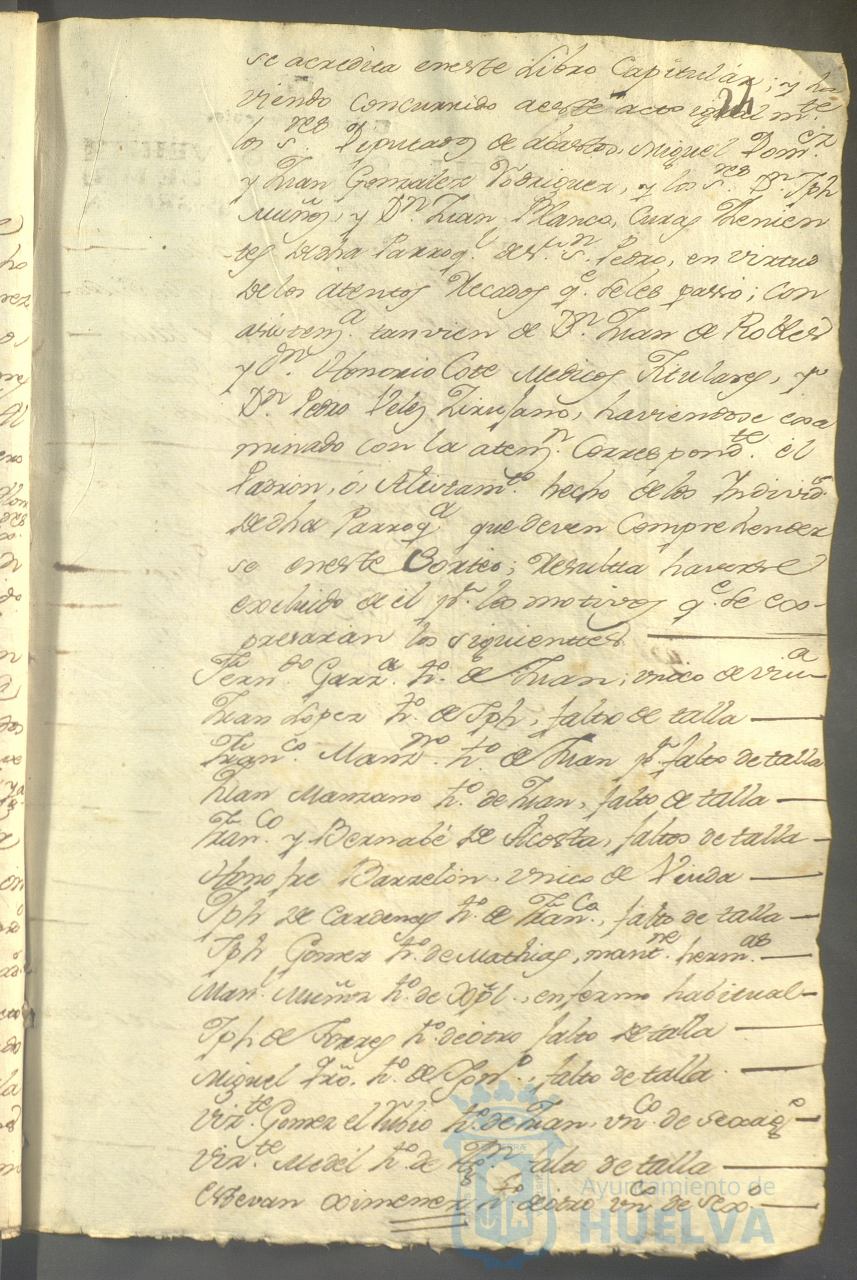 se acredita eneste Libro Capitulár; y ha
24
viendo concurrido aeste acto igual m.te
los S.res Diputados de abastos, Miguel Dom.ez
y Juan Gonzalez Rodriguez, y los S.res D.n Jph
Muñoz, y D.n Juan Blanco, Curas Thenien
tes dedha Parroq.l del S.n Pedro, en virtud
delos atentos Recados q.e seles passó; con
asistem.a tanvien de D.n Juan de Robles
y D.n Honorio Cote Medicos Titulares, y
D.n Pedro Velez Zirujano, haviendose exa
minado con la atem.n Correspond.te el
Padron, ó, Alistam.to hecho delos Individ.s
dedha Parroq.a que deven Comprehender
se eneste Sorteo; Resulta haverse
excluido de el p.r los motivos q.e se ex-
presaran los siguientes
Fern.do Garz.a h.o de Juan, unico de viu.a
Juan Lopez h.o de Jph, falto de talla
Fran.co Manz.no h.o de Juan p.r falto de talla
Juan Manzano h.o de Juan, falto de talla
Fran.co y Bernabé de Acosta, faltos de talla
Honofre Barrelon, unico de Viuda
Jph de Cardenas h.o de Fran.co, falto de talla
Jph Gomez h.o de Mathias, mant.ne herm.as
Man.l Muñoz h.o de Xpl., enfermo habitual
Jph de Torres h.o de otro falto de talla
Miguel h.o de falto de talla
Viz.te Gomez el Rubio h.o de Juan, un.co de sexag.o
Viz.te Medél h.o de falto de talla
Estevan Ximenez h.o deotro un.co de sex.o
Ayuntamiento de
HUELVA